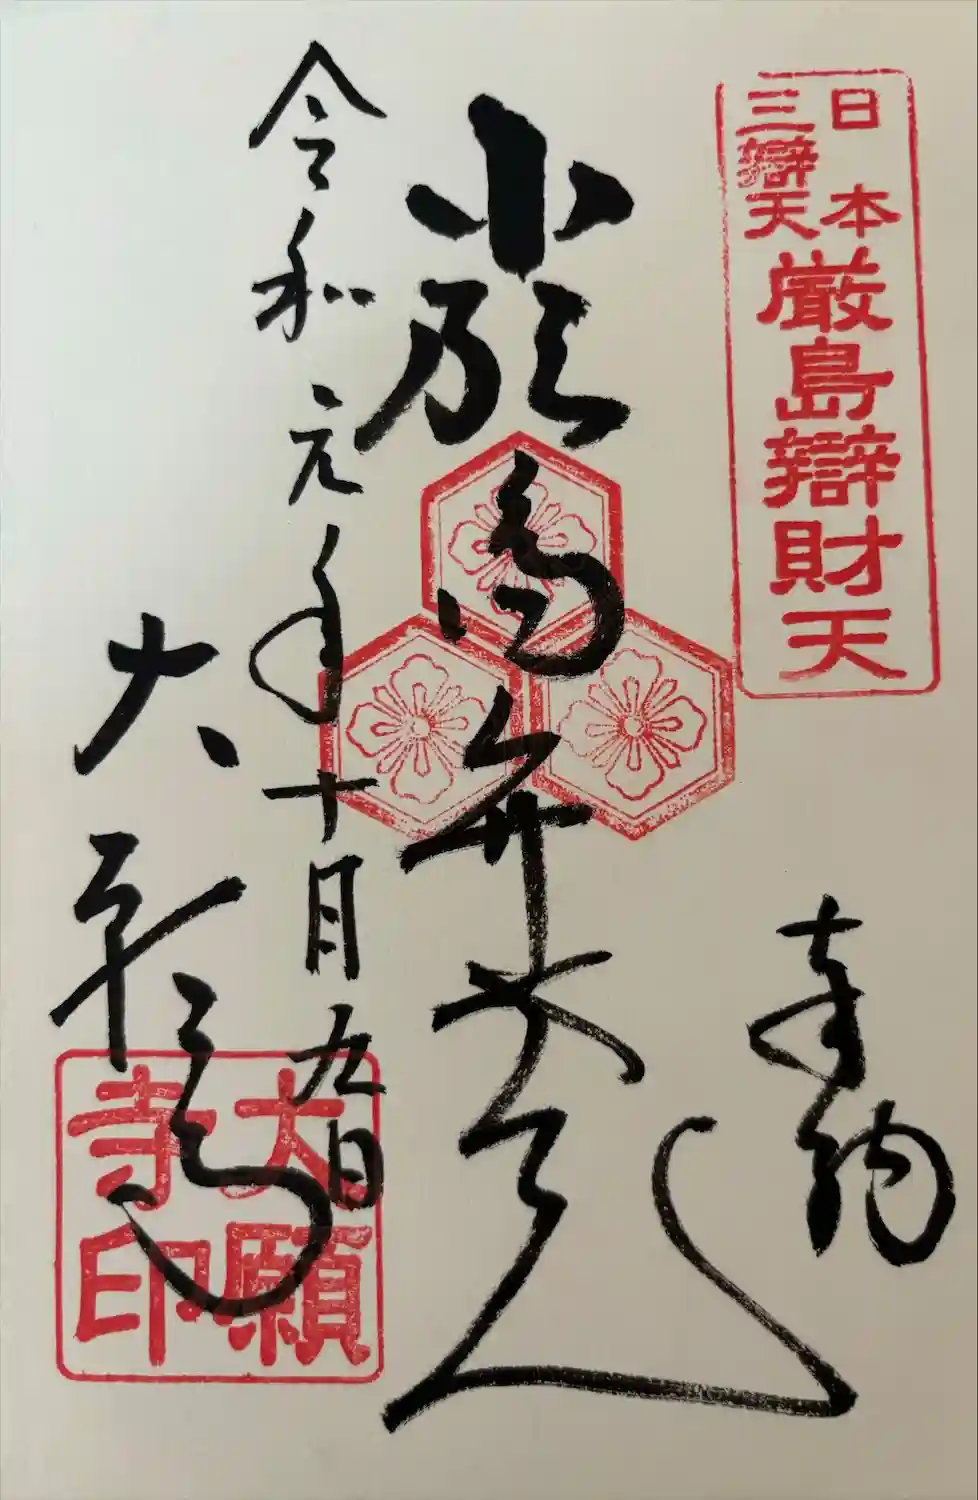 日本
三辯天
厳島辯財天
奉納
厳島弁才天
令和元年十月九日
大願寺
大願
寺印